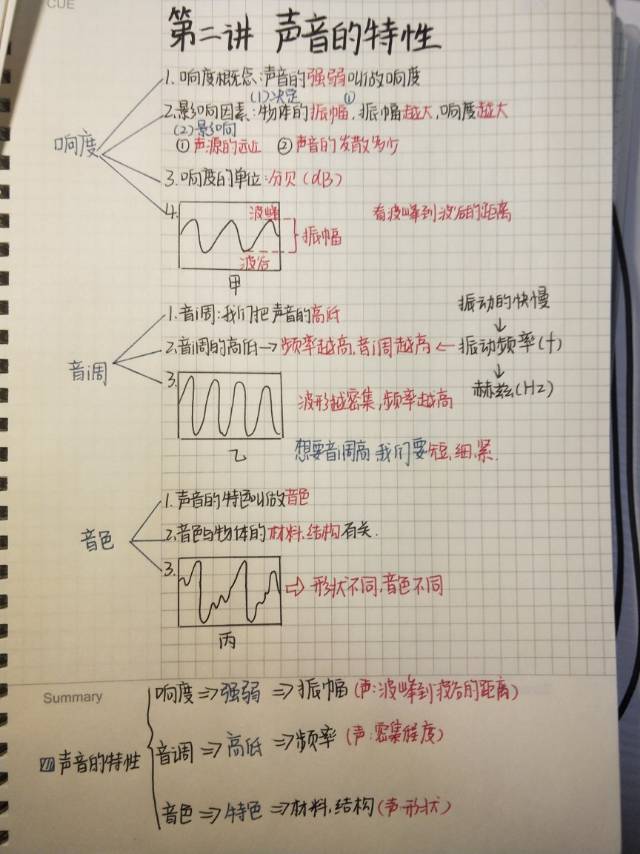 CUE
第二讲 声音的特性
响度
1. 响度概念:声音的强弱叫做响度
(1)决定 ①
2.影响因素:物体的振幅,振幅越大,响度越大
(2)影响
①声源的远近 ②声音的发散多少
3.响度的单位:分贝(dB)
4.
波峰
看波峰到波谷的距离
振幅
波谷
甲
音调
1.音调:我们把声音的高低
振动的快慢
2.音调的高低→频率越高,音调越高←振动频率(f)
3.
波形越密集,频率越高
赫兹(Hz)
乙
想要音调高,我们要短,细,紧.
音色
1.声音的特色叫做音色
2.音色与物体的材料,结构有关.
3.
⇨形状不同,音色不同
丙
Summary
声音的特性
响度⇒强弱⇒振幅(声:波峰到波谷的距离)
音调⇒高低⇒频率(声:密集程度)
音色⇒特色⇒材料,结构(声形状)